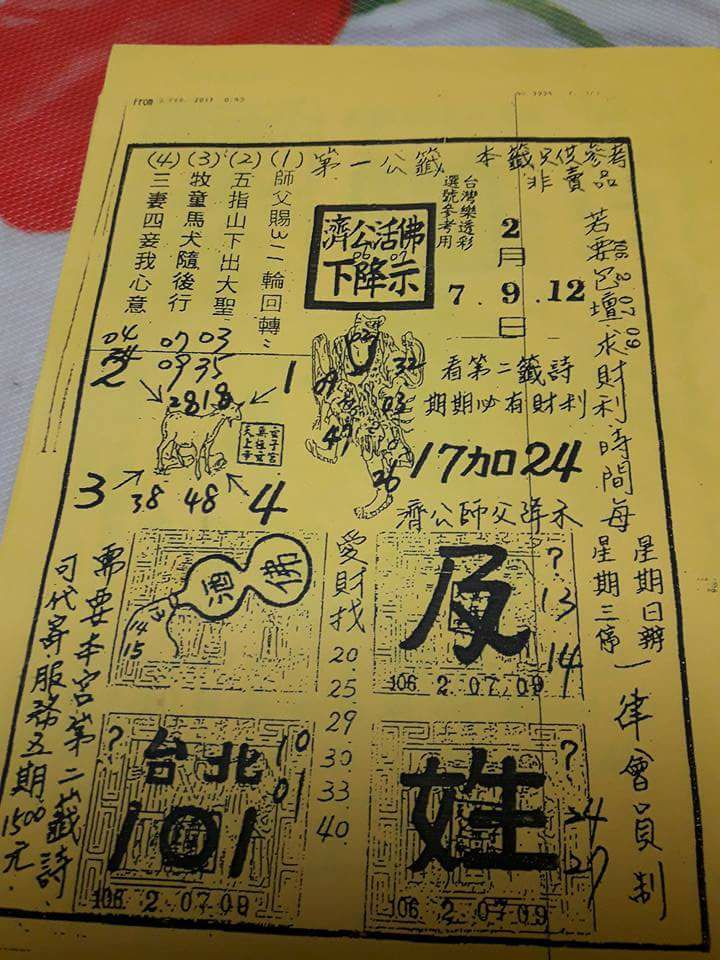 From
2017
本籤只供參考
非賣品
第一公籤
(1)師父賜32一輪回轉
(2)五指山下出大聖
(3)牧童馬犬隨後行
(4)三妻四妾我心意
台灣樂透彩
選號參考用
濟公活佛
06 07
下降示
2
月
7.9.12
日
若要巴壇求財利時間每
星期日辦
星期三停
一律會員制
04
07 03
09 35
2818
1
2
3
38 48
4
02
09
32
03
49
26
看第二籤詩
期期必有財利
17加24
濟公師父降示
酒佛
14
15
愛財找
20
25
29
30
33
40
及
?
13
14
106 2 07 09
台北
101
?
10
01
106 2 07 09
姓
?
24
106 2 07 09
需要本宮第二籤詩
可代寄服務五期1500元